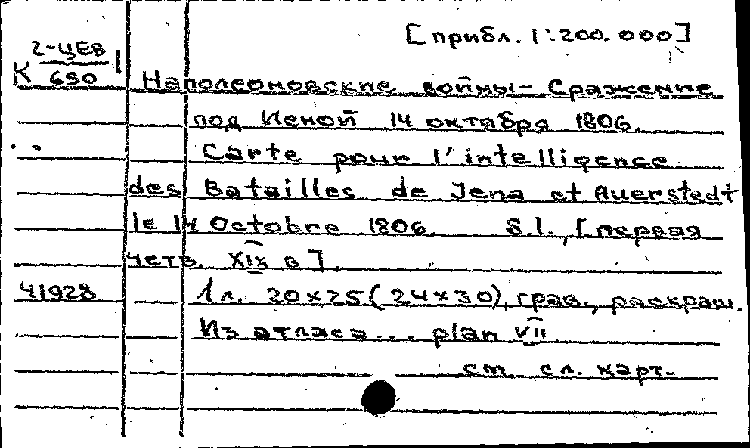 [прибл. 1:200.000]
2-ЦЕВ
К 690
Наполеоновские войны - Сражение
под Иеной 14 октября 1806.
Carte pour l'intelligence
des Batailles de Jena et Auerstedt
le 14 Octobre 1806. S.l., [первая
четв. XIX в].
41928 1 л. 20x25 (24x30), грав., раскраш.
Из атласа... plan VII
см. сл. карт.